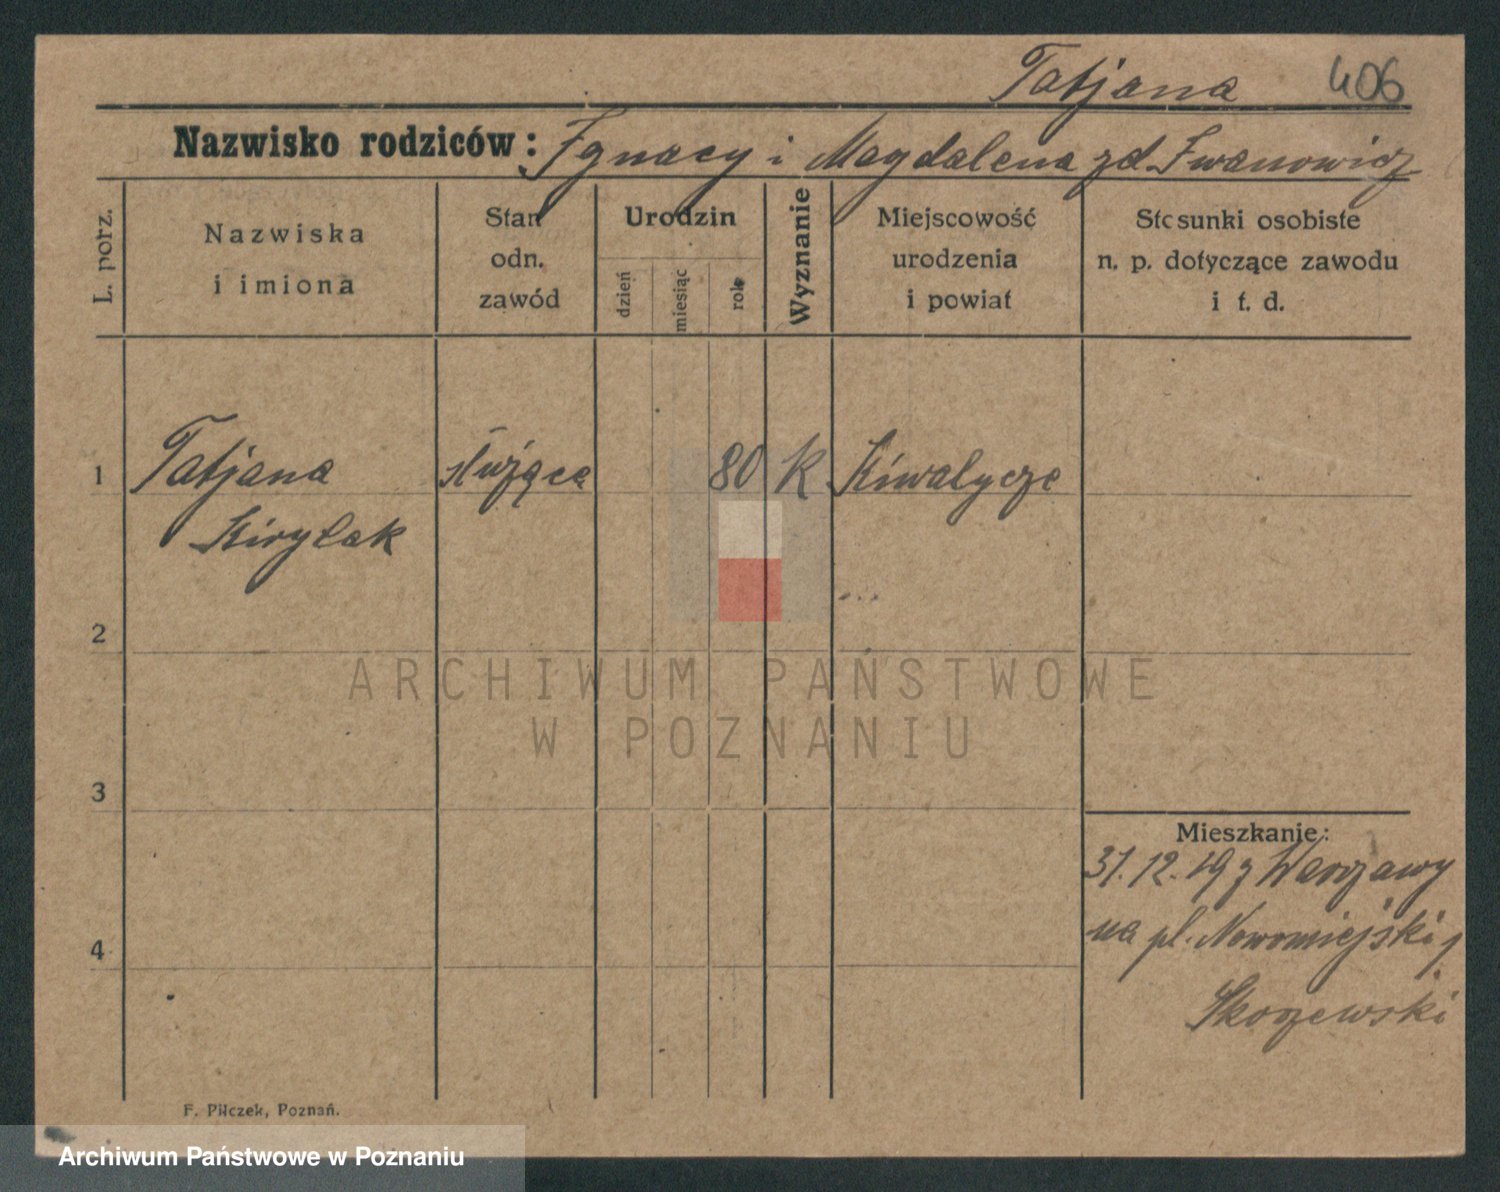 Tatjana 406
Nazwisko rodziców: Ignacy i Magdalena zd Iwanowicz
L. porz.
Nazwiska
i imiona
Stan
odn.
zawód
Urodzin
dzień
miesiąc
rok
Wyznanie
Miejscowość
urodzenia
i powiat
Stosunki osobiste
n. p. dotyczące zawodu
i t. d.
1 Tatjana służąca 80 K Kiwalycze
Kiryłak
2
3
4
ARCHIWUM PAŃSTWOWE
W POZNANIU
Mieszkanie:
31.12.19 z Warszawy
na pl. Nowomiejski 1
Skorzewski
F. Pilczek, Poznań.
Archiwum Państwowe w Poznaniu